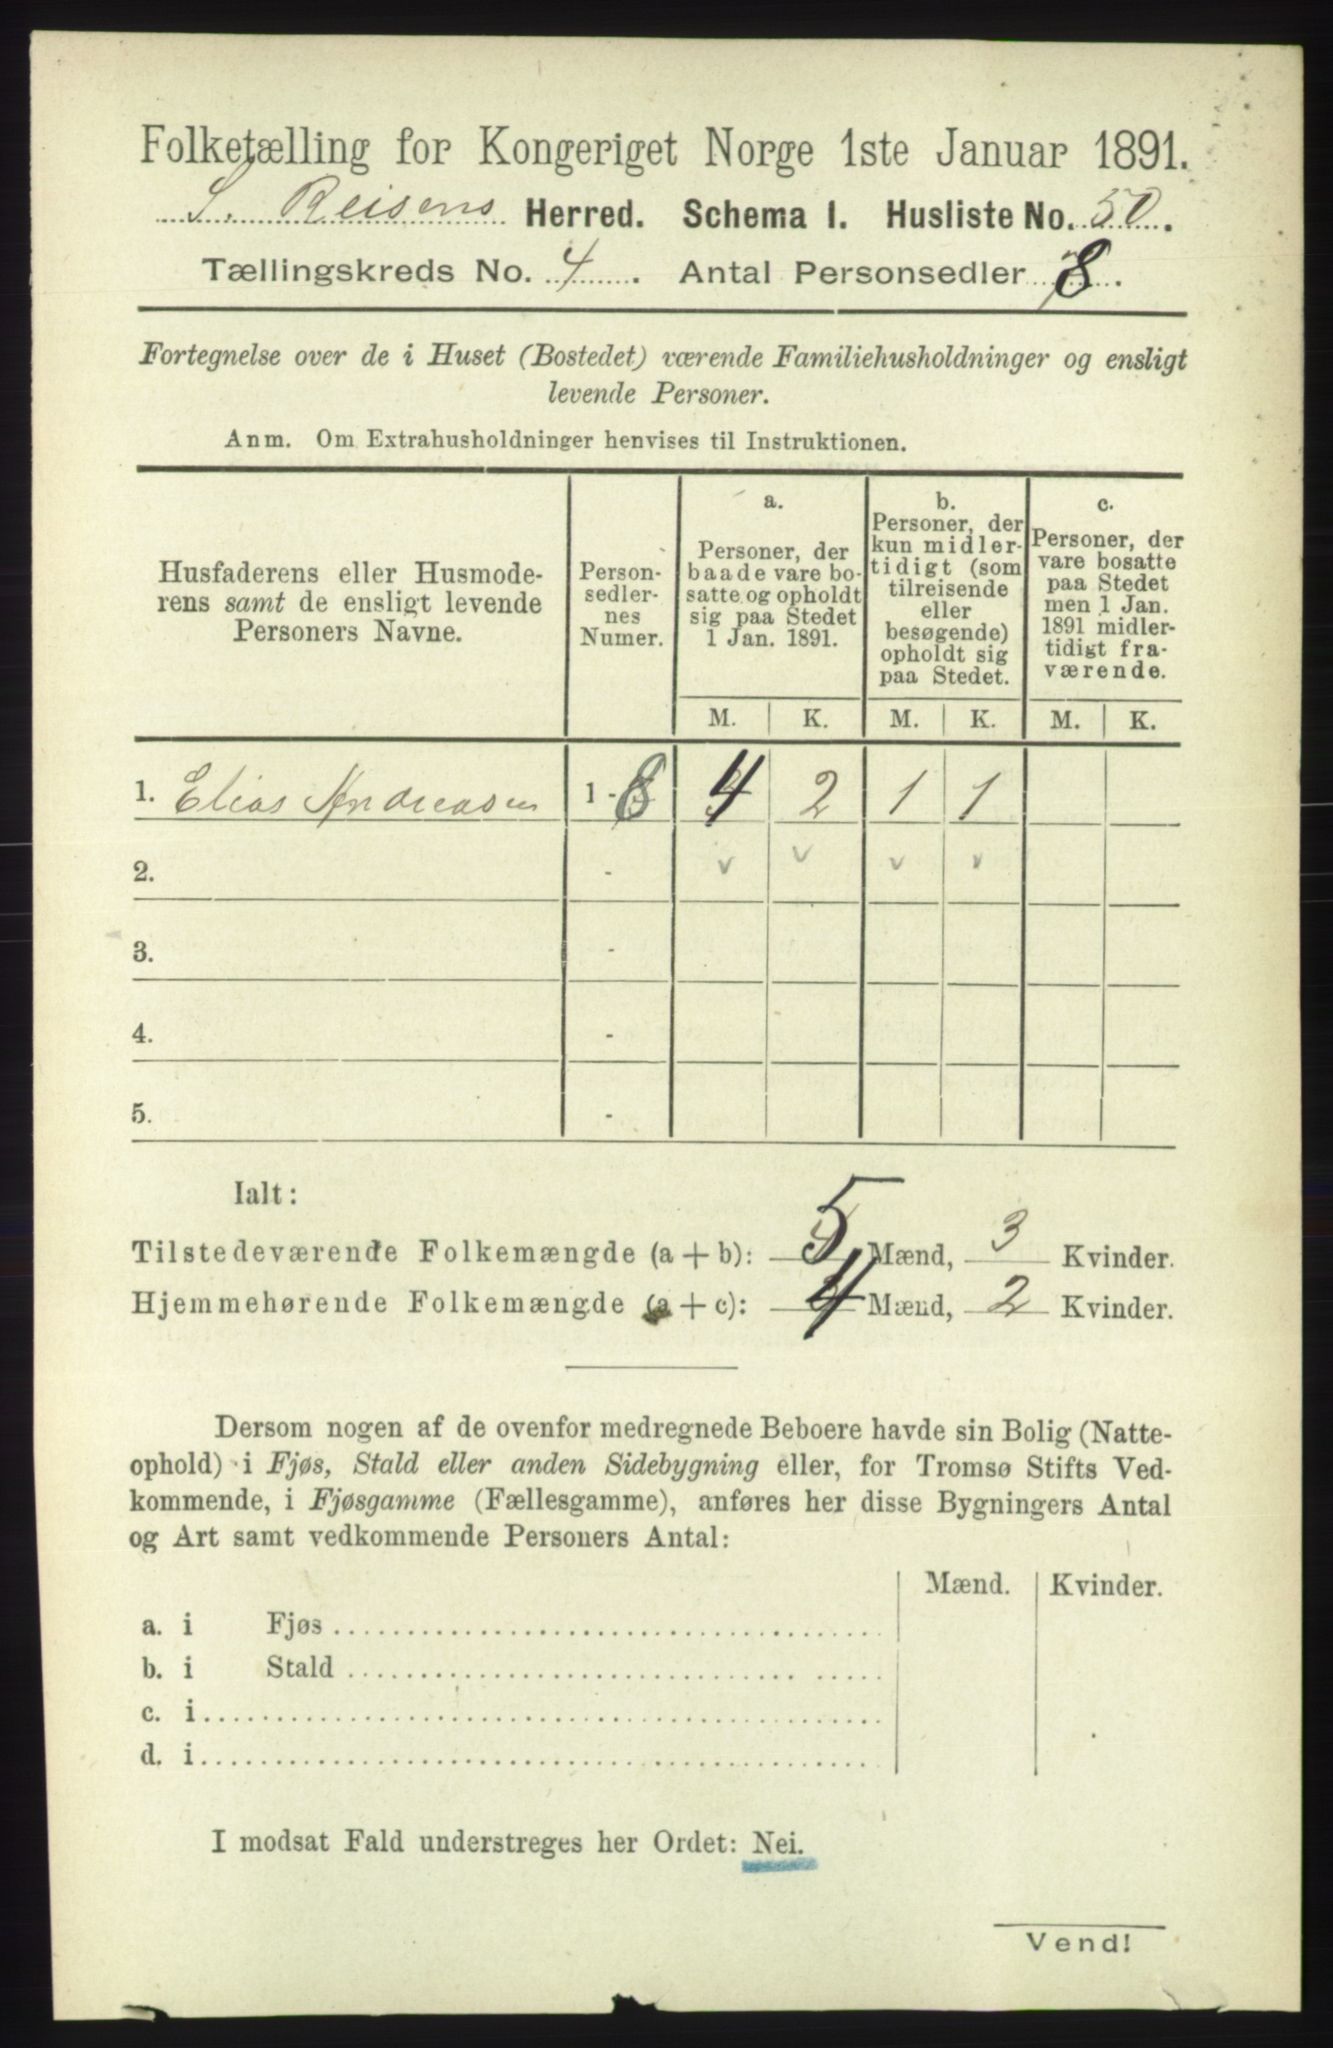 Folketælling for Kongeriget Norge 1ste Januar 1891.
S. Reisens Herred. Schema I. Husliste No. 50.
Tællingskreds No. 4. Antal Personsedler 8.
Fortegnelse over de i Huset (Bostedet) værende Familiehusholdninger og ensligt
levende Personer.
Anm. Om Extrahusholdninger henvises til Instruktionen.
Husfaderens eller Husmode-
rens samt de ensligt levende
Personers Navne.
Person-
sedler-
nes
Numer.
a.
Personer, der
baade vare bo-
satte og opholdt
sig paa Stedet
1 Jan. 1891.
b.
Personer, der
kun midler-
tidigt (som
tilreisende
eller
besøgende)
opholdt sig
paa Stedet.
c.
Personer, der
vare bosatte
paa Stedet
men 1 Jan.
1891 midler-
tidigt fra-
værende.
M. K. M. K. M. K.
1. Elias Andreasen 1 - 8 4 2 1 1
2. - v v v v
3. -
4. -
5. -
Ialt:
Tilstedeværende Folkemængde (a + b): 5 Mænd, 3 Kvinder.
Hjemmehørende Folkemængde (a + c): 4 Mænd, 2 Kvinder.
Dersom nogen af de ovenfor medregnede Beboere havde sin Bolig (Natte-
ophold) i Fjøs, Stald eller anden Sidebygning eller, for Tromsø Stifts Ved-
kommende, i Fjøsgamme (Fællesgamme), anføres her disse Bygningers Antal
og Art samt vedkommende Personers Antal:
Mænd. Kvinder.
a. i Fjøs
b. i Stald
c. i
d. i
I modsat Fald understreges her Ordet: Nei.
Vend!